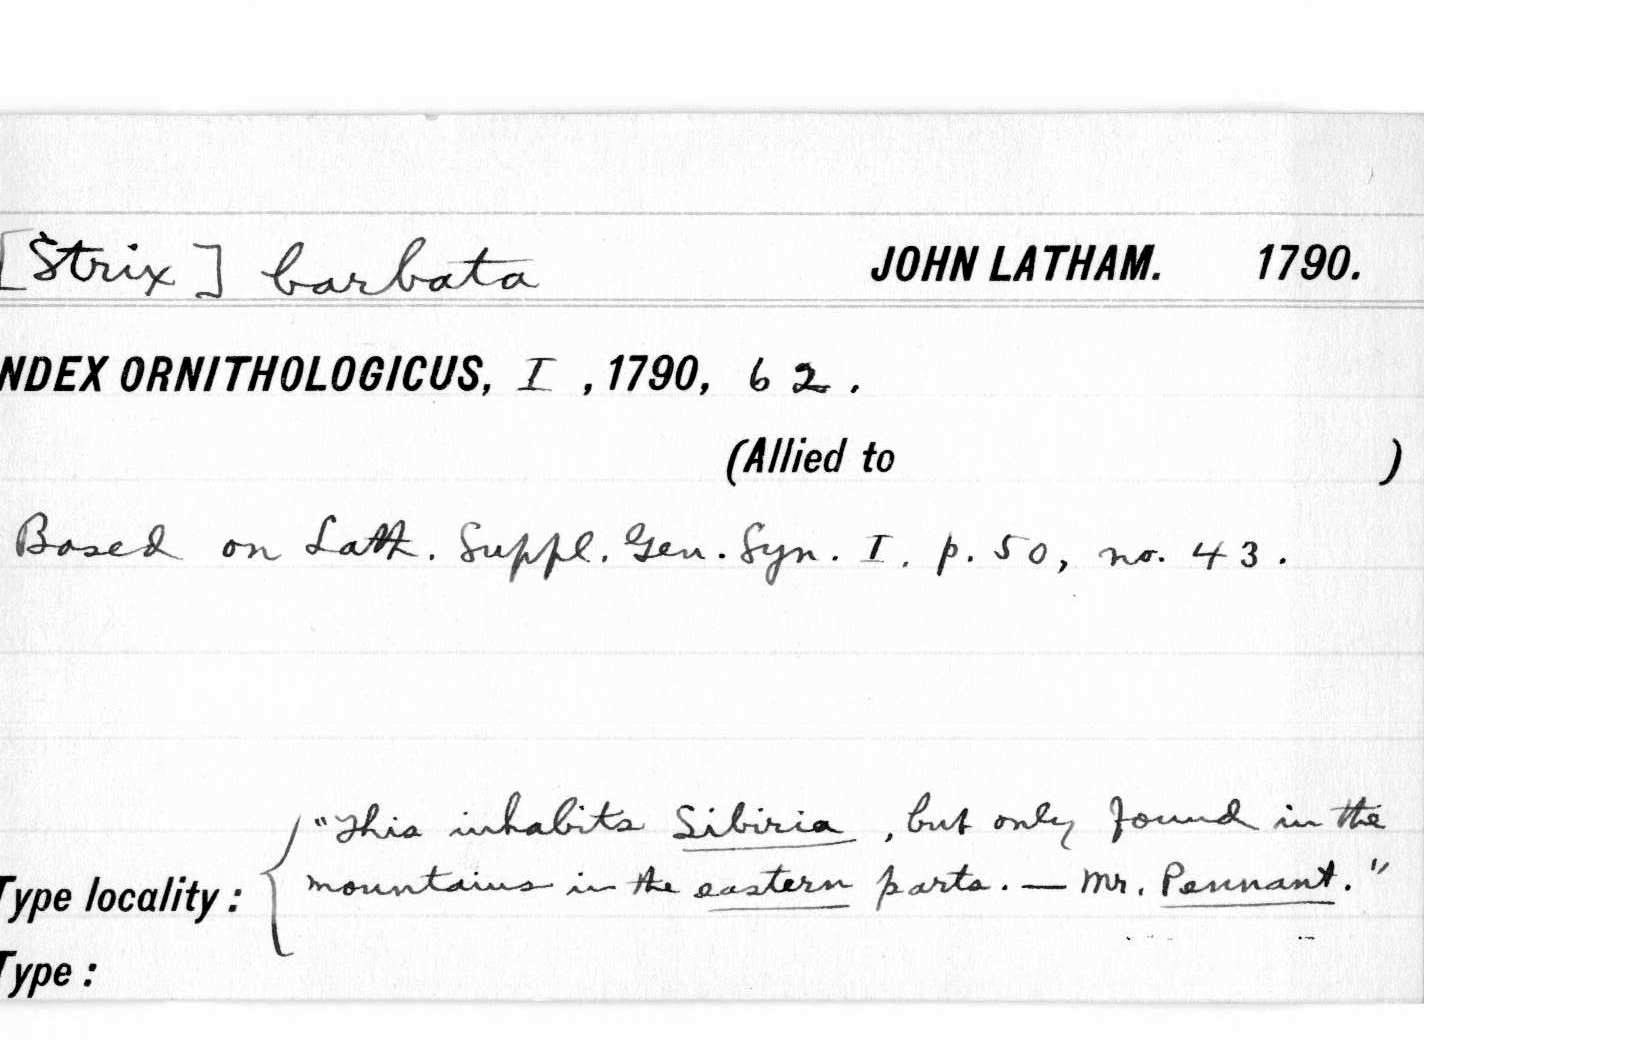 [Strix] barbata JOHN LATHAM. 1790.
NDEX ORNITHOLOGICUS, I , 1790, 62.
(Allied to )
Based on Lath. Suppl. Gen. Syn. I. p. 50, no. 43.
"This inhabits Sibiria, but only found in the
mountains in the eastern parts. — Mr. Pennant."
Type locality:
Type: